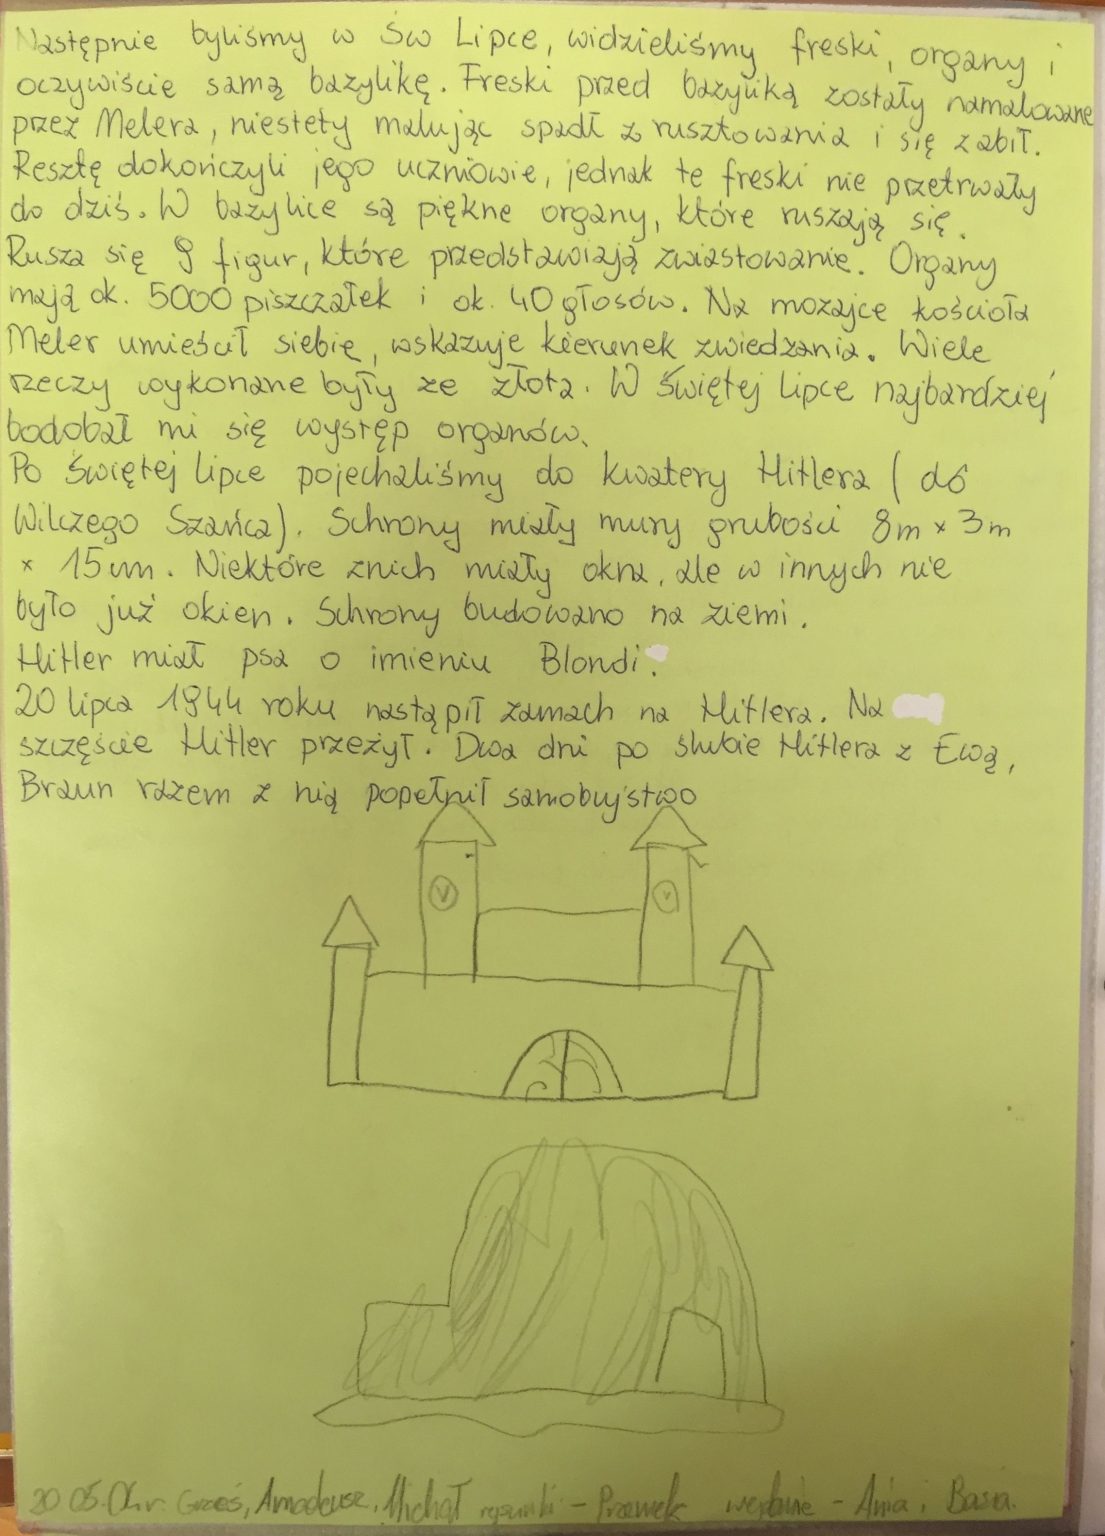 Następnie byliśmy w Św Lipce, widzieliśmy freski, organy i
oczywiście samą bazylikę. Freski przed bazyliką zostały namalowane
przez Melera, niestety malując spadł z rusztowania i się zabił.
Resztę dokończyli jego uczniowie, jednak te freski nie przetrwały
do dziś. W bazylice są piękne organy, które ruszają się.
Rusza się 9 figur, które przedstawiają zwiastowanie. Organy
mają ok. 5000 piszczałek i ok. 40 głosów. Na mozajce kościoła
Meler umieścił siebie, wskazuje kierunek zwiedzania. Wiele
rzeczy wykonane były ze złota. W Świętej Lipce najbardziej
bodobał mi się występ organów.
Po Świętej Lipce pojechaliśmy do kwatery Hitlera (do
Wilczego Szańca). Schrony miały mury grubości 8m x 3m
x 15cm. Niektóre znich miały okna, ale w innych nie
było już okien. Schrony budowano na ziemi.
Hitler miał psa o imieniu Blondi.
20 lipca 1944 roku nastąpił zamach na Hitlera. Na
szczęście Hitler przeżył. Dwa dni po ślubie Hitlera z Ewą,
Braun razem z nią popełnił samobujstwo
Grześ, Amadeusz, Michał rysunki - Przemek - Ania i Basia.